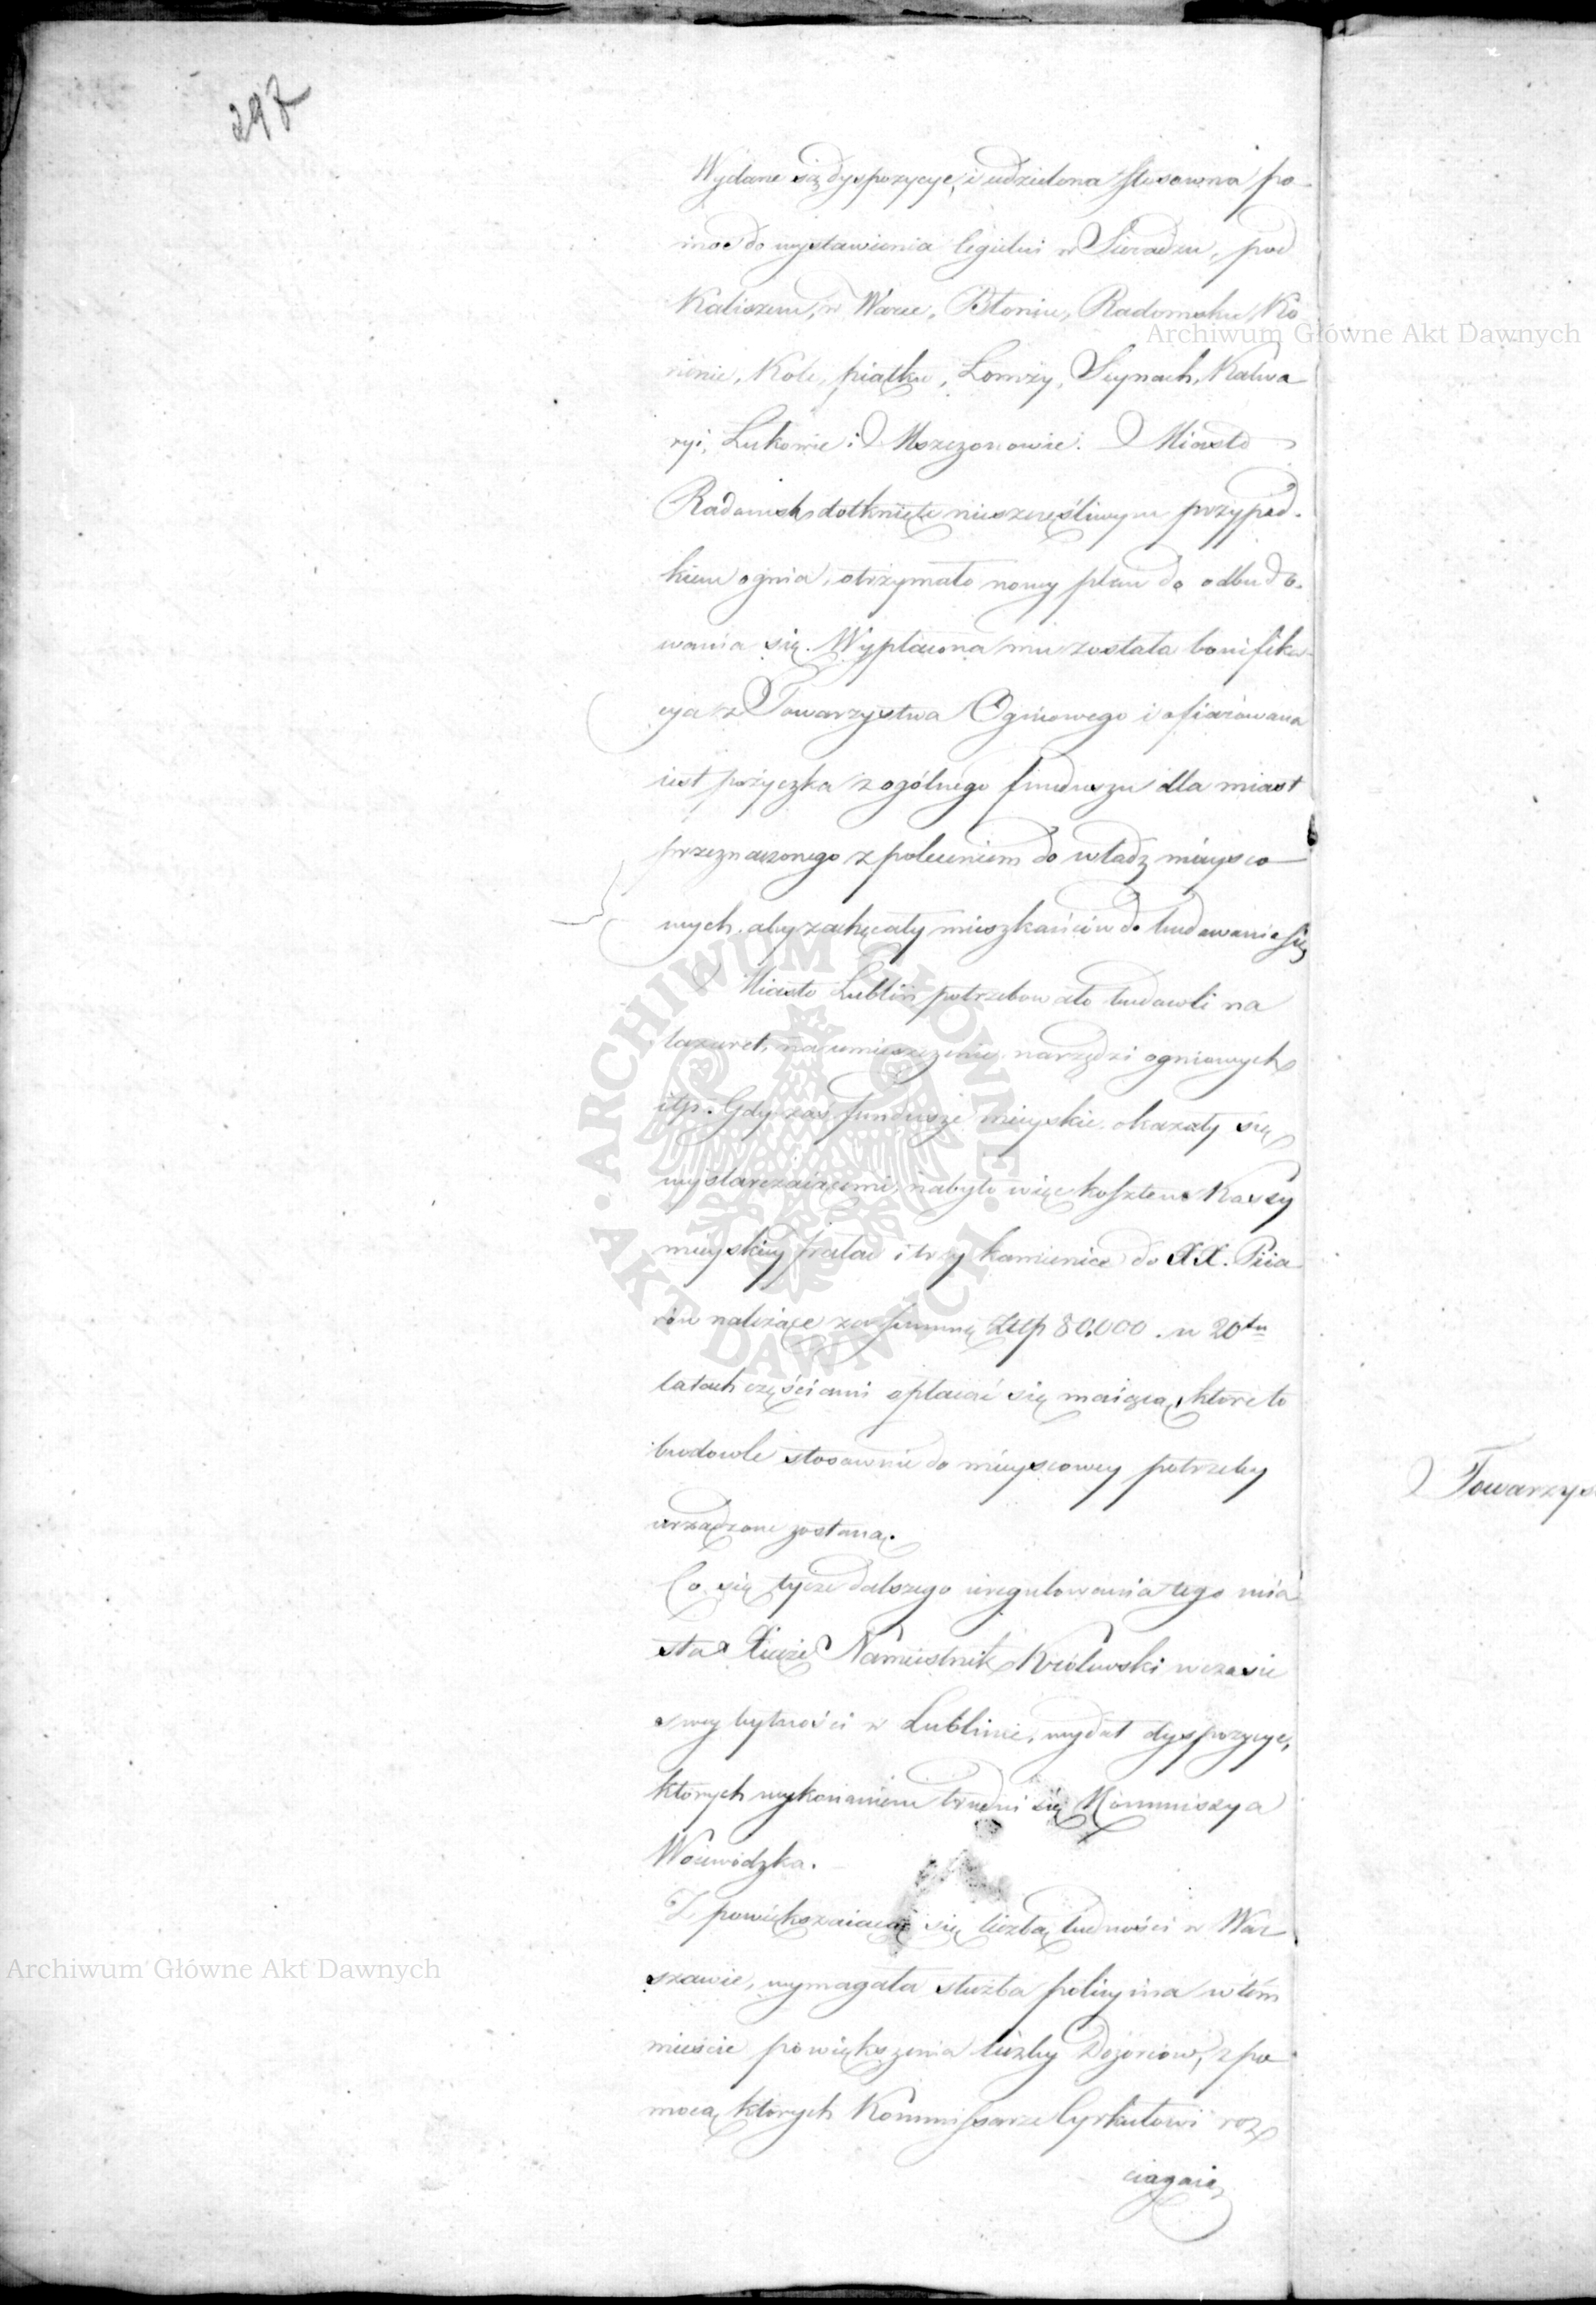 297
Wydane są dyspozycye, i udzielona stosowna po-
moc do wystawienia cegielni w Sieradzu, pod
Kaliszem, w Warce, Błoniu, Radomsku, Ko-
ninie, Kole, piątku, Łomży, Seynach, Kalwa
ryi, Łukowie i Mszczonowie. Miasto
Radomsk dotknięte nieszczęśliwym przypad-
kiem ognia, otrzymało nowy plan do odbudo-
wania się. Wypłacona mu została bonifika-
cya z Towarzystwa Ogniowego i ofiarowana
iest pożyczka z ogólnego funduszu dla miast
przeznaczonego z poleceniem do władz mieysco-
wych, aby zachęcały mieszkańców do budowania się
Miasto Lublin potrzebowało budowli na
lazaret, na umieszczenie narzędzi ogniowych
itp. Gdy zaś fundusze mieyskie okazały się
wystarczaiącemi, nabyto więc kosztem Kassy
mieyskiey pałac i trzy kamienice do XX. Piia
rów należące za summę Złłp 80,000. w 20tu
latach częściami opłacać się maiącą, które to
budowle stosownie do mieyscowey potrzeby
urządzone zostaną.
Co się tycze dalszego uregulowania tego mia
sta Xiąże Namiestnik Królewski w czasie
swey bytności w Lublinie, wydał dyspozycye,
których wykonaniem trudni się Kommissya
Woiewódzka.
Z powiększaiącą się liczbą ludności w War
szawie, wymagała służba policyina w tém
mieście powiększenia liczby Dozorców, z po
mocą których Kommissarze Cyrkułowi roz
ciągaią
Towarzys
Archiwum Główne Akt Dawnych
Archiwum Główne Akt Dawnych
ARCHIWUM GŁÓWNE AKT DAWNYCH